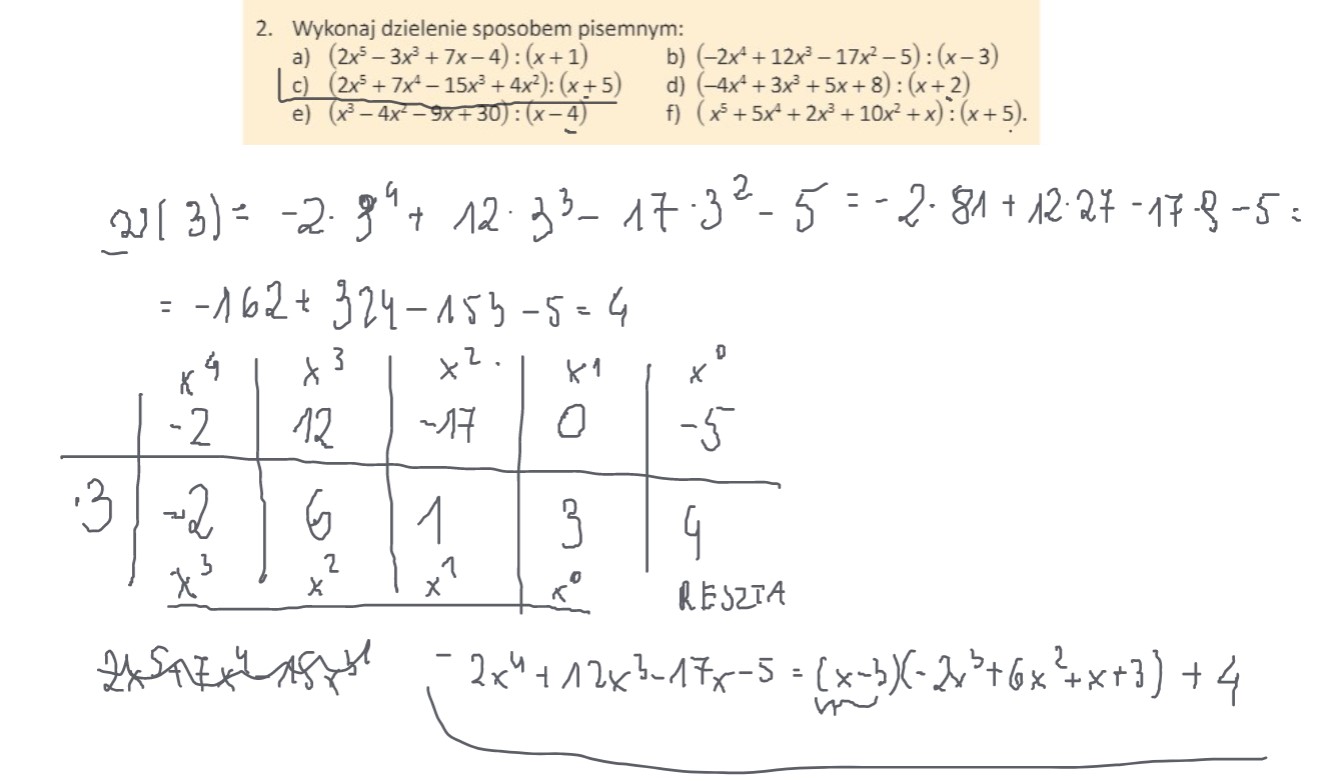 2. Wykonaj dzielenie sposobem pisemnym:
a) (2x⁵ – 3x³ + 7x – 4) : (x + 1) b) (–2x⁴ + 12x³ – 17x² – 5) : (x – 3)
c) (2x⁵ + 7x⁴ – 15x³ + 4x²): (x + 5) d) (–4x⁴ + 3x³ + 5x + 8) : (x + 2)
e) (x³ – 4x² – 9x + 30) : (x – 4) f) ( x⁵ + 5x⁴ + 2x³ + 10x² + x) : (x + 5).
W(3) = -2·3⁴ + 12·3³ - 17·3² - 5 = -2·81 + 12·27 - 17·9 - 5 =
= -162 + 324 - 153 - 5 = 4
x⁴ x³ x² x¹ x⁰
-2 12 -17 0 -5
3 -2 6 1 3 4
x³ x² x¹ x⁰ RESZTA
2x⁵+7x⁴-15x³ -2x⁴ + 12x³ - 17x - 5 = (x-3)(-2x³ + 6x² + x + 3) + 4